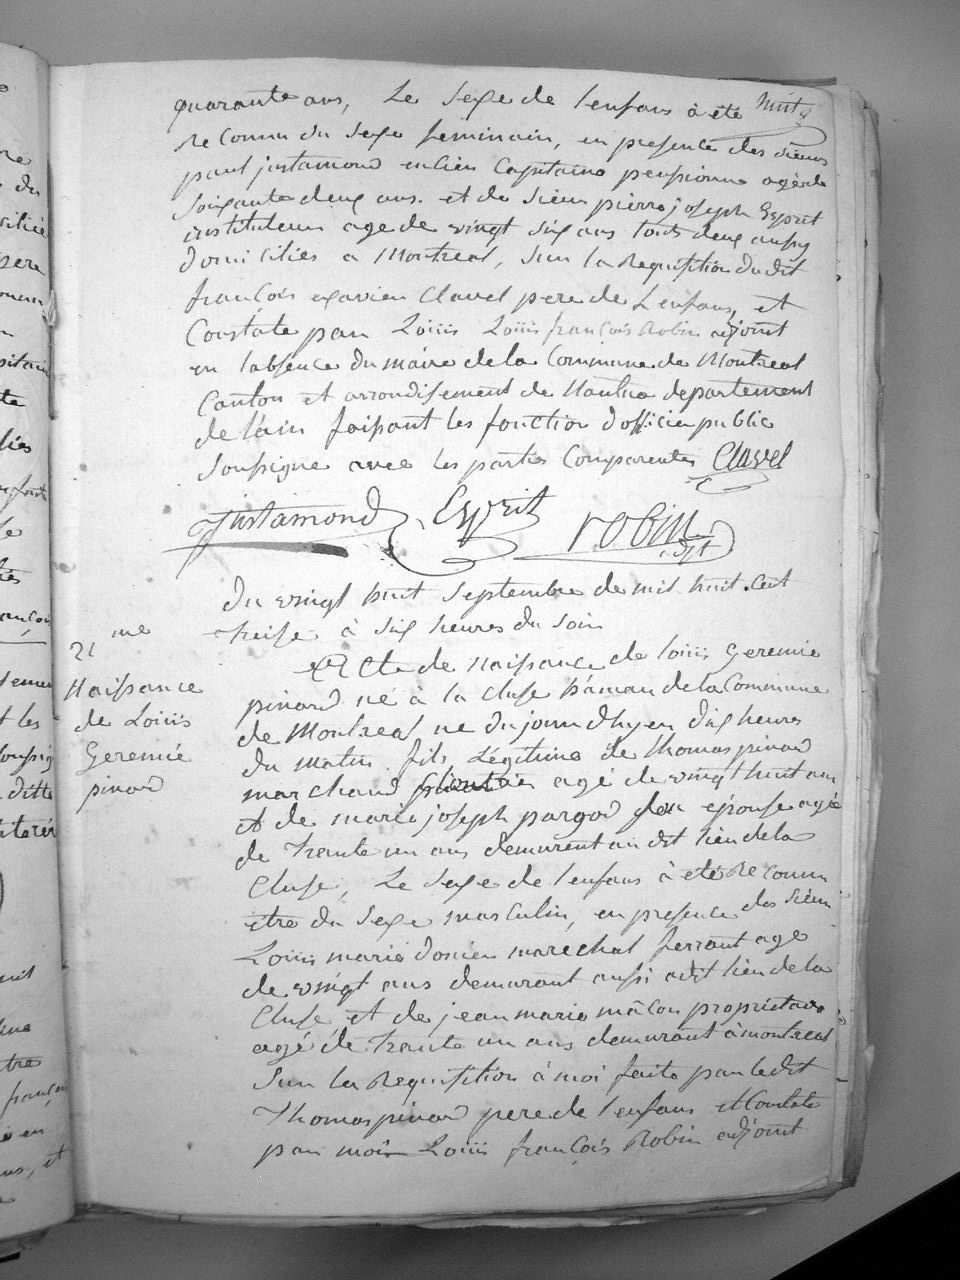 huit
quarante ans, Le Sexe de l'enfans à été
reconnu du sexe feminain, en presence des sieurs
paul justamond encien Capitaine pensionné agé de
Soixante deux ans. et de Sieur pierre joseph Esprit
instituteur age de vingt six ans touts deux aussy
domiciliés a Montreal, Sur la Requisition du dit
françois exavier Clavel pere de Lenfans, et
Constate par Loüis Loüis françois Robin adjoint
en l'absence du maire de la Commune de Montreal
Canton et arrondisement de Nantua departement
de l'ain faisant les fonction d'officier public
Soussigné avec les parties Comparentes Clavel
Justamond Esprit robin
adjt
Du vingt huit Septembre de mil huit Cent
treise à six heures du Soir
21 me
Naissance
de Loüis
Geremie
pinard
Acte de Naissance de loüis Geremie
pinard né à la Cluse hamau de la Commune
de Montreal né du jour d'hyer dix heures
du matin fils Légitime de thomas pinard
marchand agé de vingt huit ans
et de marie joseph pargod Son epouse agée
de trente un ans demeurent au dit lieu de la
Cluse, Le Sexe de l'enfans à été Reconnu
être du Sexe masculin, en presence des Sieur
Loüis marie marechal ferrant age
de vingt ans demurant aussi a dit lieu de la
Cluse et de jean marie mâcon proprietaire
agé de trente un ans demurant à montreal
Sur la Requisition à moi faite par ledit
Thomas pinard pere de l'enfans et Constate
par moi Loüis françois Robin adjoint